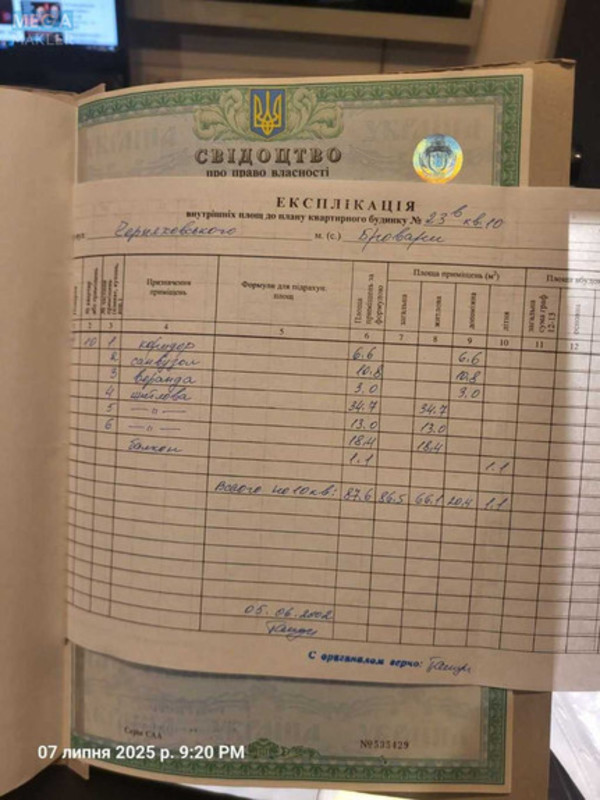 MEGA
MAKLER
СВІДОЦТВО
про право власності
ЕКСПЛІКАЦІЯ
внутрішніх площ до плану квартирного будинку № 23в кв.10
Черняховського м. (с.) Бровари
Призначення приміщень
Формули для підрахунк площ
Площа приміщень за формулою
Площа приміщень (м²)
загальна
житлова
допоміжна
літня
загальна сума граф 12-13
основна
2 3 4 5 6 7 8 9 10 11 12
10 1 коридор 6.6 6.6
2 санвузол 10.8 10.8
3 веранда 3.0 3.0
4 житлова 34.7 34.7
5 — " — 13.0 13.0
6 — " — 18.4 18.4
балкон 1.1 1.1
Всього по 10 кв: 87.6 86.5 66.1 20.4 1.1
05.06.2002
С оригиналом верно:
Серія САА
№535429
07 липня 2025 р. 9:20 PM